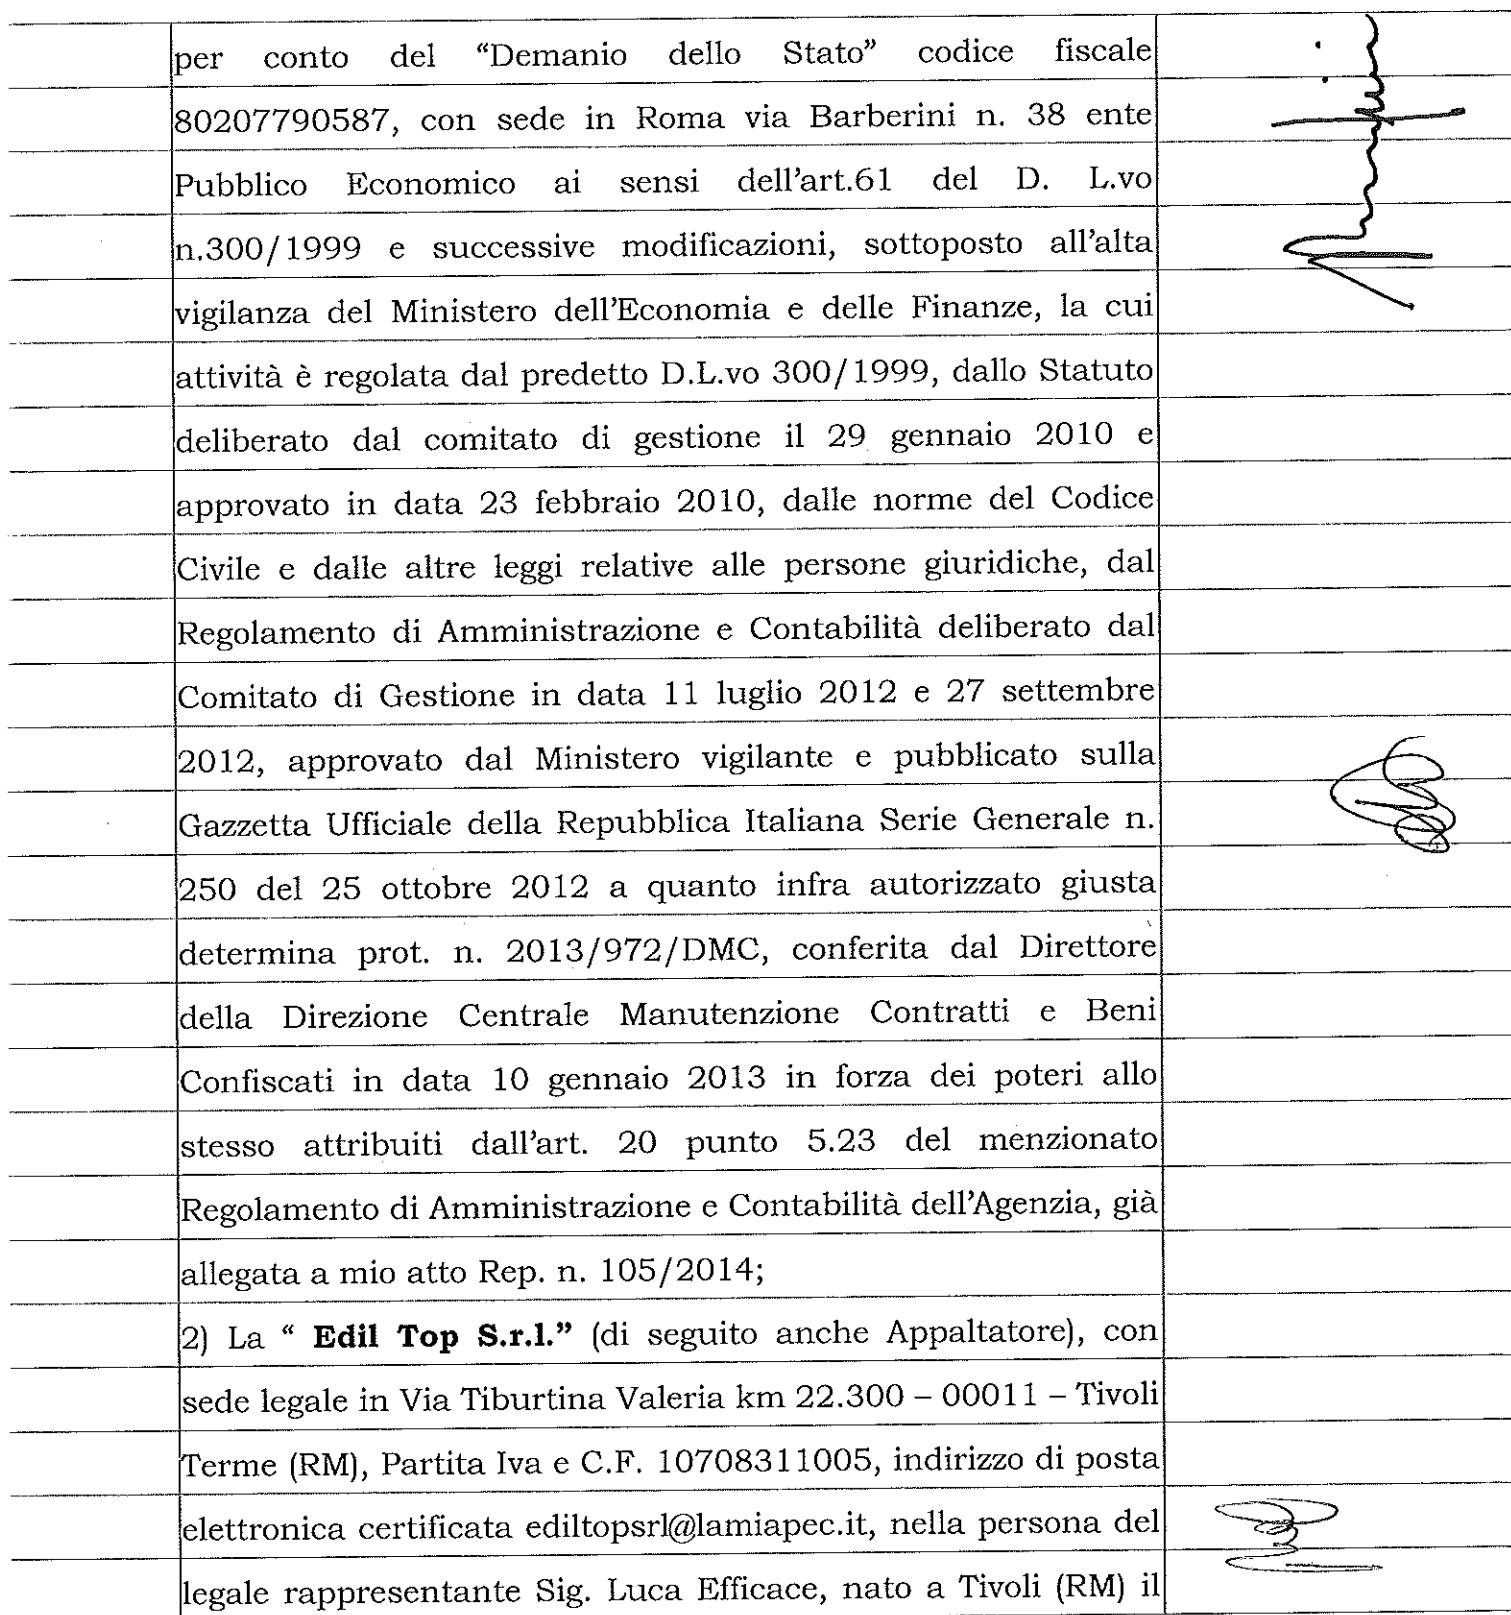 per conto del “Demanio dello Stato” codice fiscale
80207790587, con sede in Roma via Barberini n. 38 ente
Pubblico Economico ai sensi dell'art.61 del D. L.vo
n.300/1999 e successive modificazioni, sottoposto all'alta
vigilanza del Ministero dell'Economia e delle Finanze, la cui
attività è regolata dal predetto D.L.vo 300/1999, dallo Statuto
deliberato dal comitato di gestione il 29 gennaio 2010 e
approvato in data 23 febbraio 2010, dalle norme del Codice
Civile e dalle altre leggi relative alle persone giuridiche, dal
Regolamento di Amministrazione e Contabilità deliberato dal
Comitato di Gestione in data 11 luglio 2012 e 27 settembre
2012, approvato dal Ministero vigilante e pubblicato sulla
Gazzetta Ufficiale della Repubblica Italiana Serie Generale n.
250 del 25 ottobre 2012 a quanto infra autorizzato giusta
determina prot. n. 2013/972/DMC, conferita dal Direttore
della Direzione Centrale Manutenzione Contratti e Beni
Confiscati in data 10 gennaio 2013 in forza dei poteri allo
stesso attribuiti dall'art. 20 punto 5.23 del menzionato
Regolamento di Amministrazione e Contabilità dell'Agenzia, già
allegata a mio atto Rep. n. 105/2014;
2) La “ Edil Top S.r.l.” (di seguito anche Appaltatore), con
sede legale in Via Tiburtina Valeria km 22.300 – 00011 – Tivoli
Terme (RM), Partita Iva e C.F. 10708311005, indirizzo di posta
elettronica certificata ediltopsrl@lamiapec.it, nella persona del
legale rappresentante Sig. Luca Efficace, nato a Tivoli (RM) il